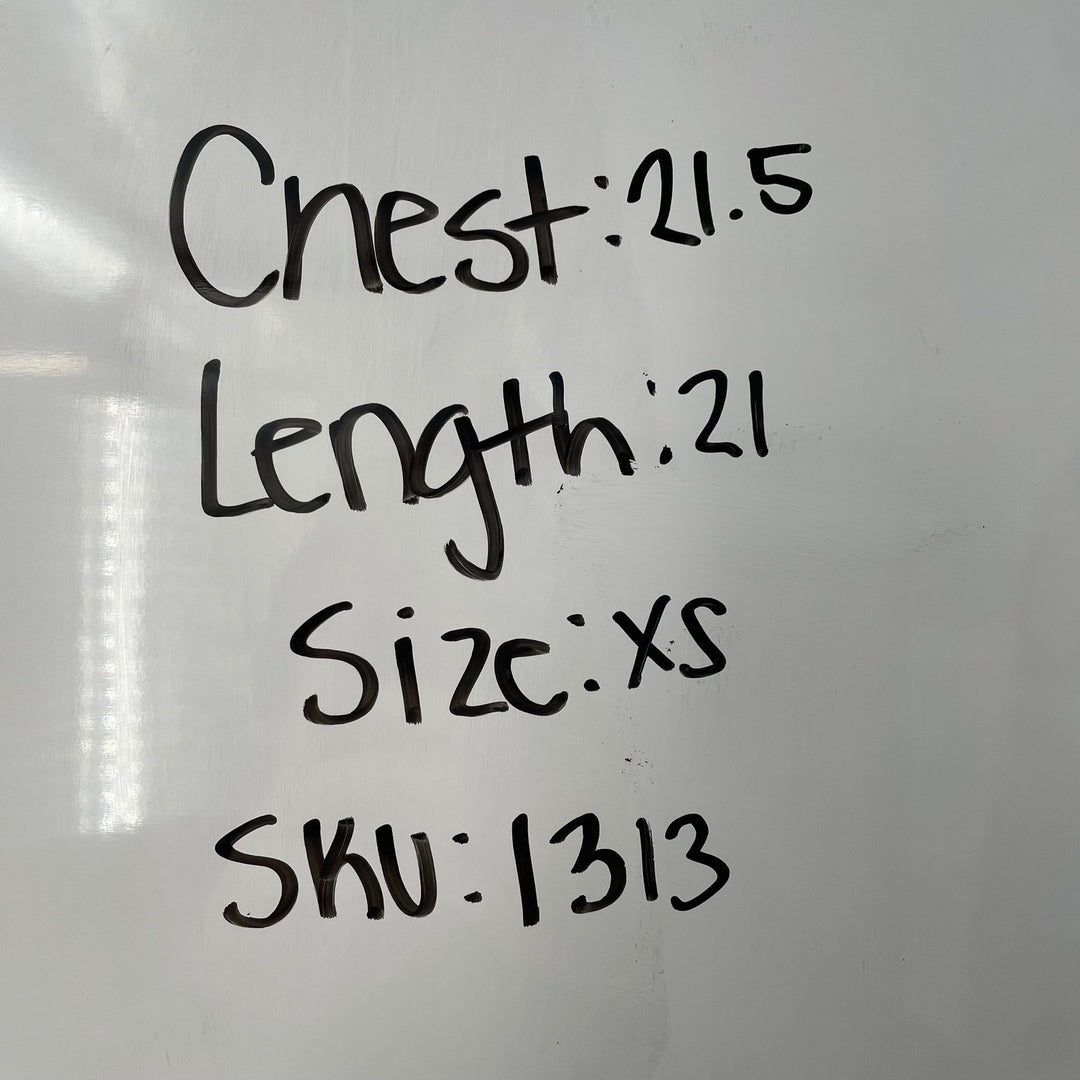 Chest: 21.5
Length: 21
Size: XS
SKU: 1313